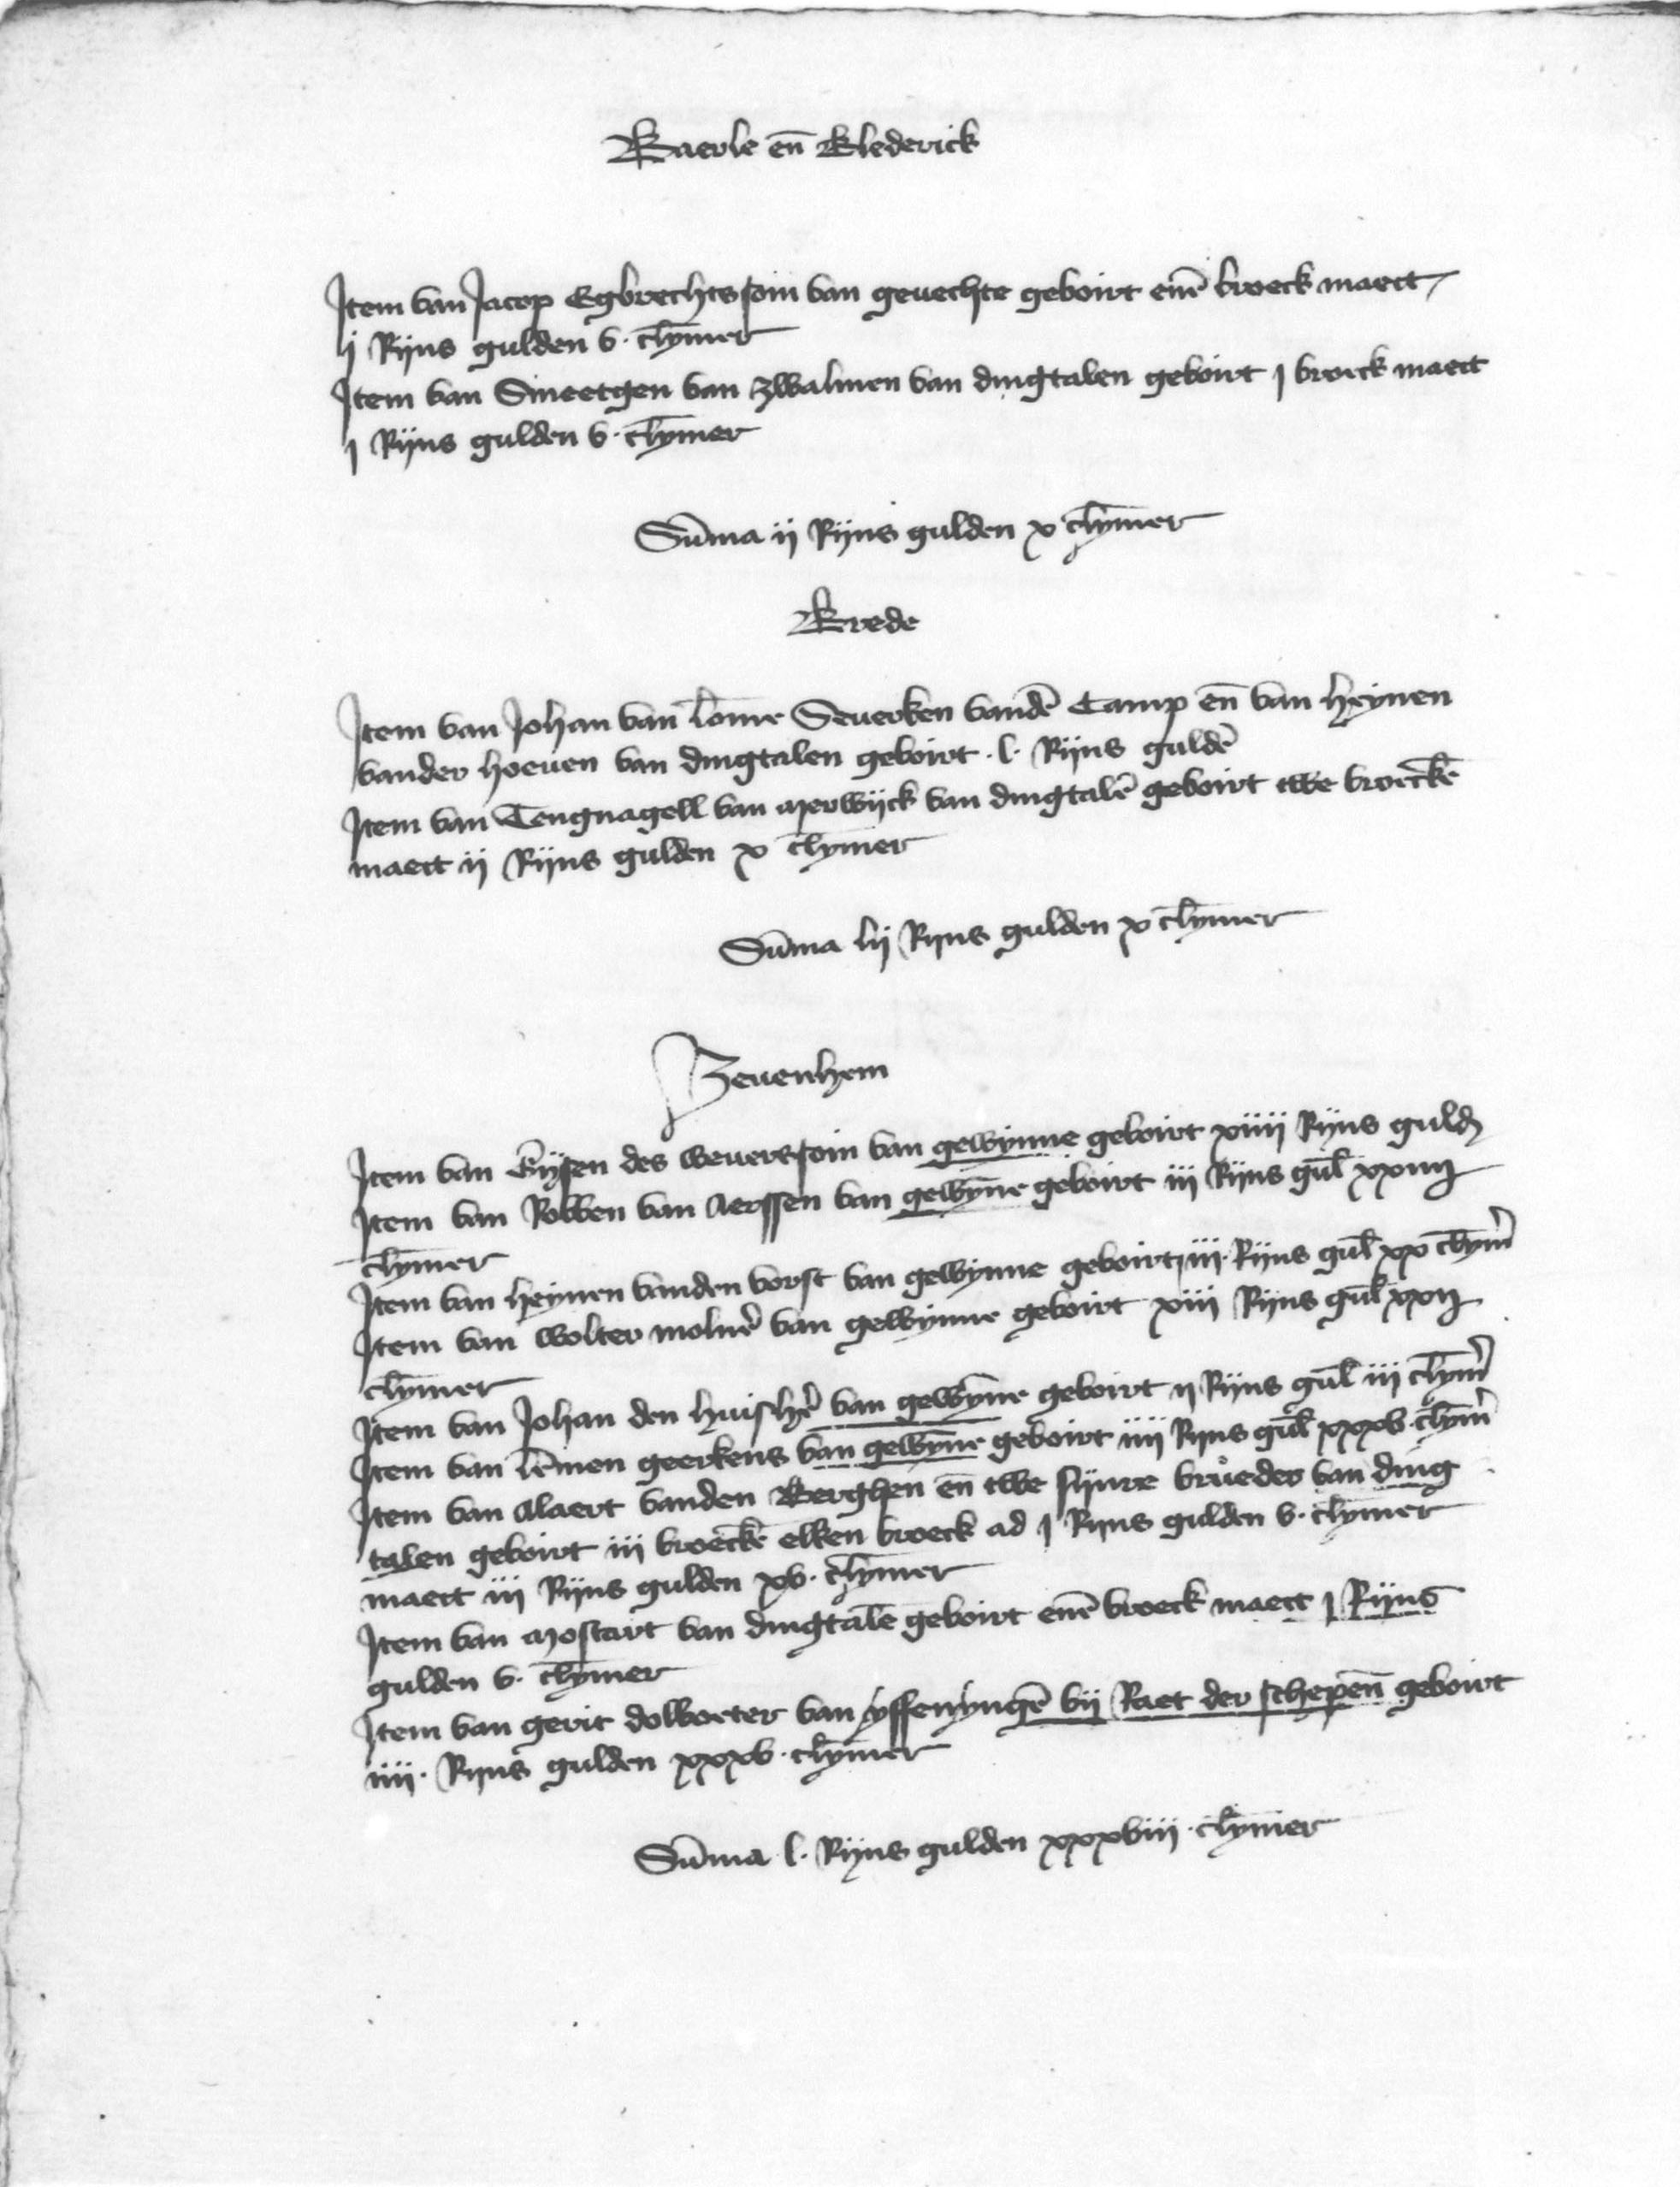 Baerle en̄ Blederick
Item van Jacop Egbrechtssoin van geuechte geboirt enē broeck maect
j Rijns gulden v. clymmer
Item van Smeetgen van zwalmen van dingtalen geboirt j broeck maect
j Rijns gulden v. clymmer
Sūma ij Rijns gulden x clymmer
Brede
Item van Johan van lomr Seuerken vandē Camp en̄ van heynen
vander hoeuen van dingtalen geboirt .l. Rijns guldē
Item van Tengnagell van merwijck van dingtalē geboirt twe broeckē
maect ij Rijns gulden x clymmer
Sūma lij Rijns gulden x clymmer
Zeuenhem
Item van des weuerssoin van gewynne geboirt xiiij Rijns guld
Item van Robben van Aerssen van gewȳne geboirt iij Rijns gul̄ xxiiij
clymmer
Item van heynen vanden vorst van gewynne geboirt iij. Rijns gul̄ xx clym̄
Item van wolter molnˀ van gewynne geboirt xiij Rijns gul̄ xxij
clymmer
Item van Johan den huischˀ van gewȳne geboirt ij Rijns gul̄ iij clym̄
Item van lēmen geerkens van gewȳne geboirt iiij Rijns gul̄ xxxv clym̄
Item van Alaert vanden Berghen en̄ twe sijnre brueder van ding
talen geboirt iij broeckē elken broeck ad j Rijns gulden v. clymmer
maect iij Rijns gulden xv. clymmer
Item van mostart van dingtalē geboirt enē broeck maect j Rijns
gulden v. clymmer
Item van gerit dolvoeter van yssenyngē bij Raet der schepen̄ geboirt
iiij. Rijns gulden xxxv. clymmer
Sūma l. Rijns gulden xxxviij. clymmer